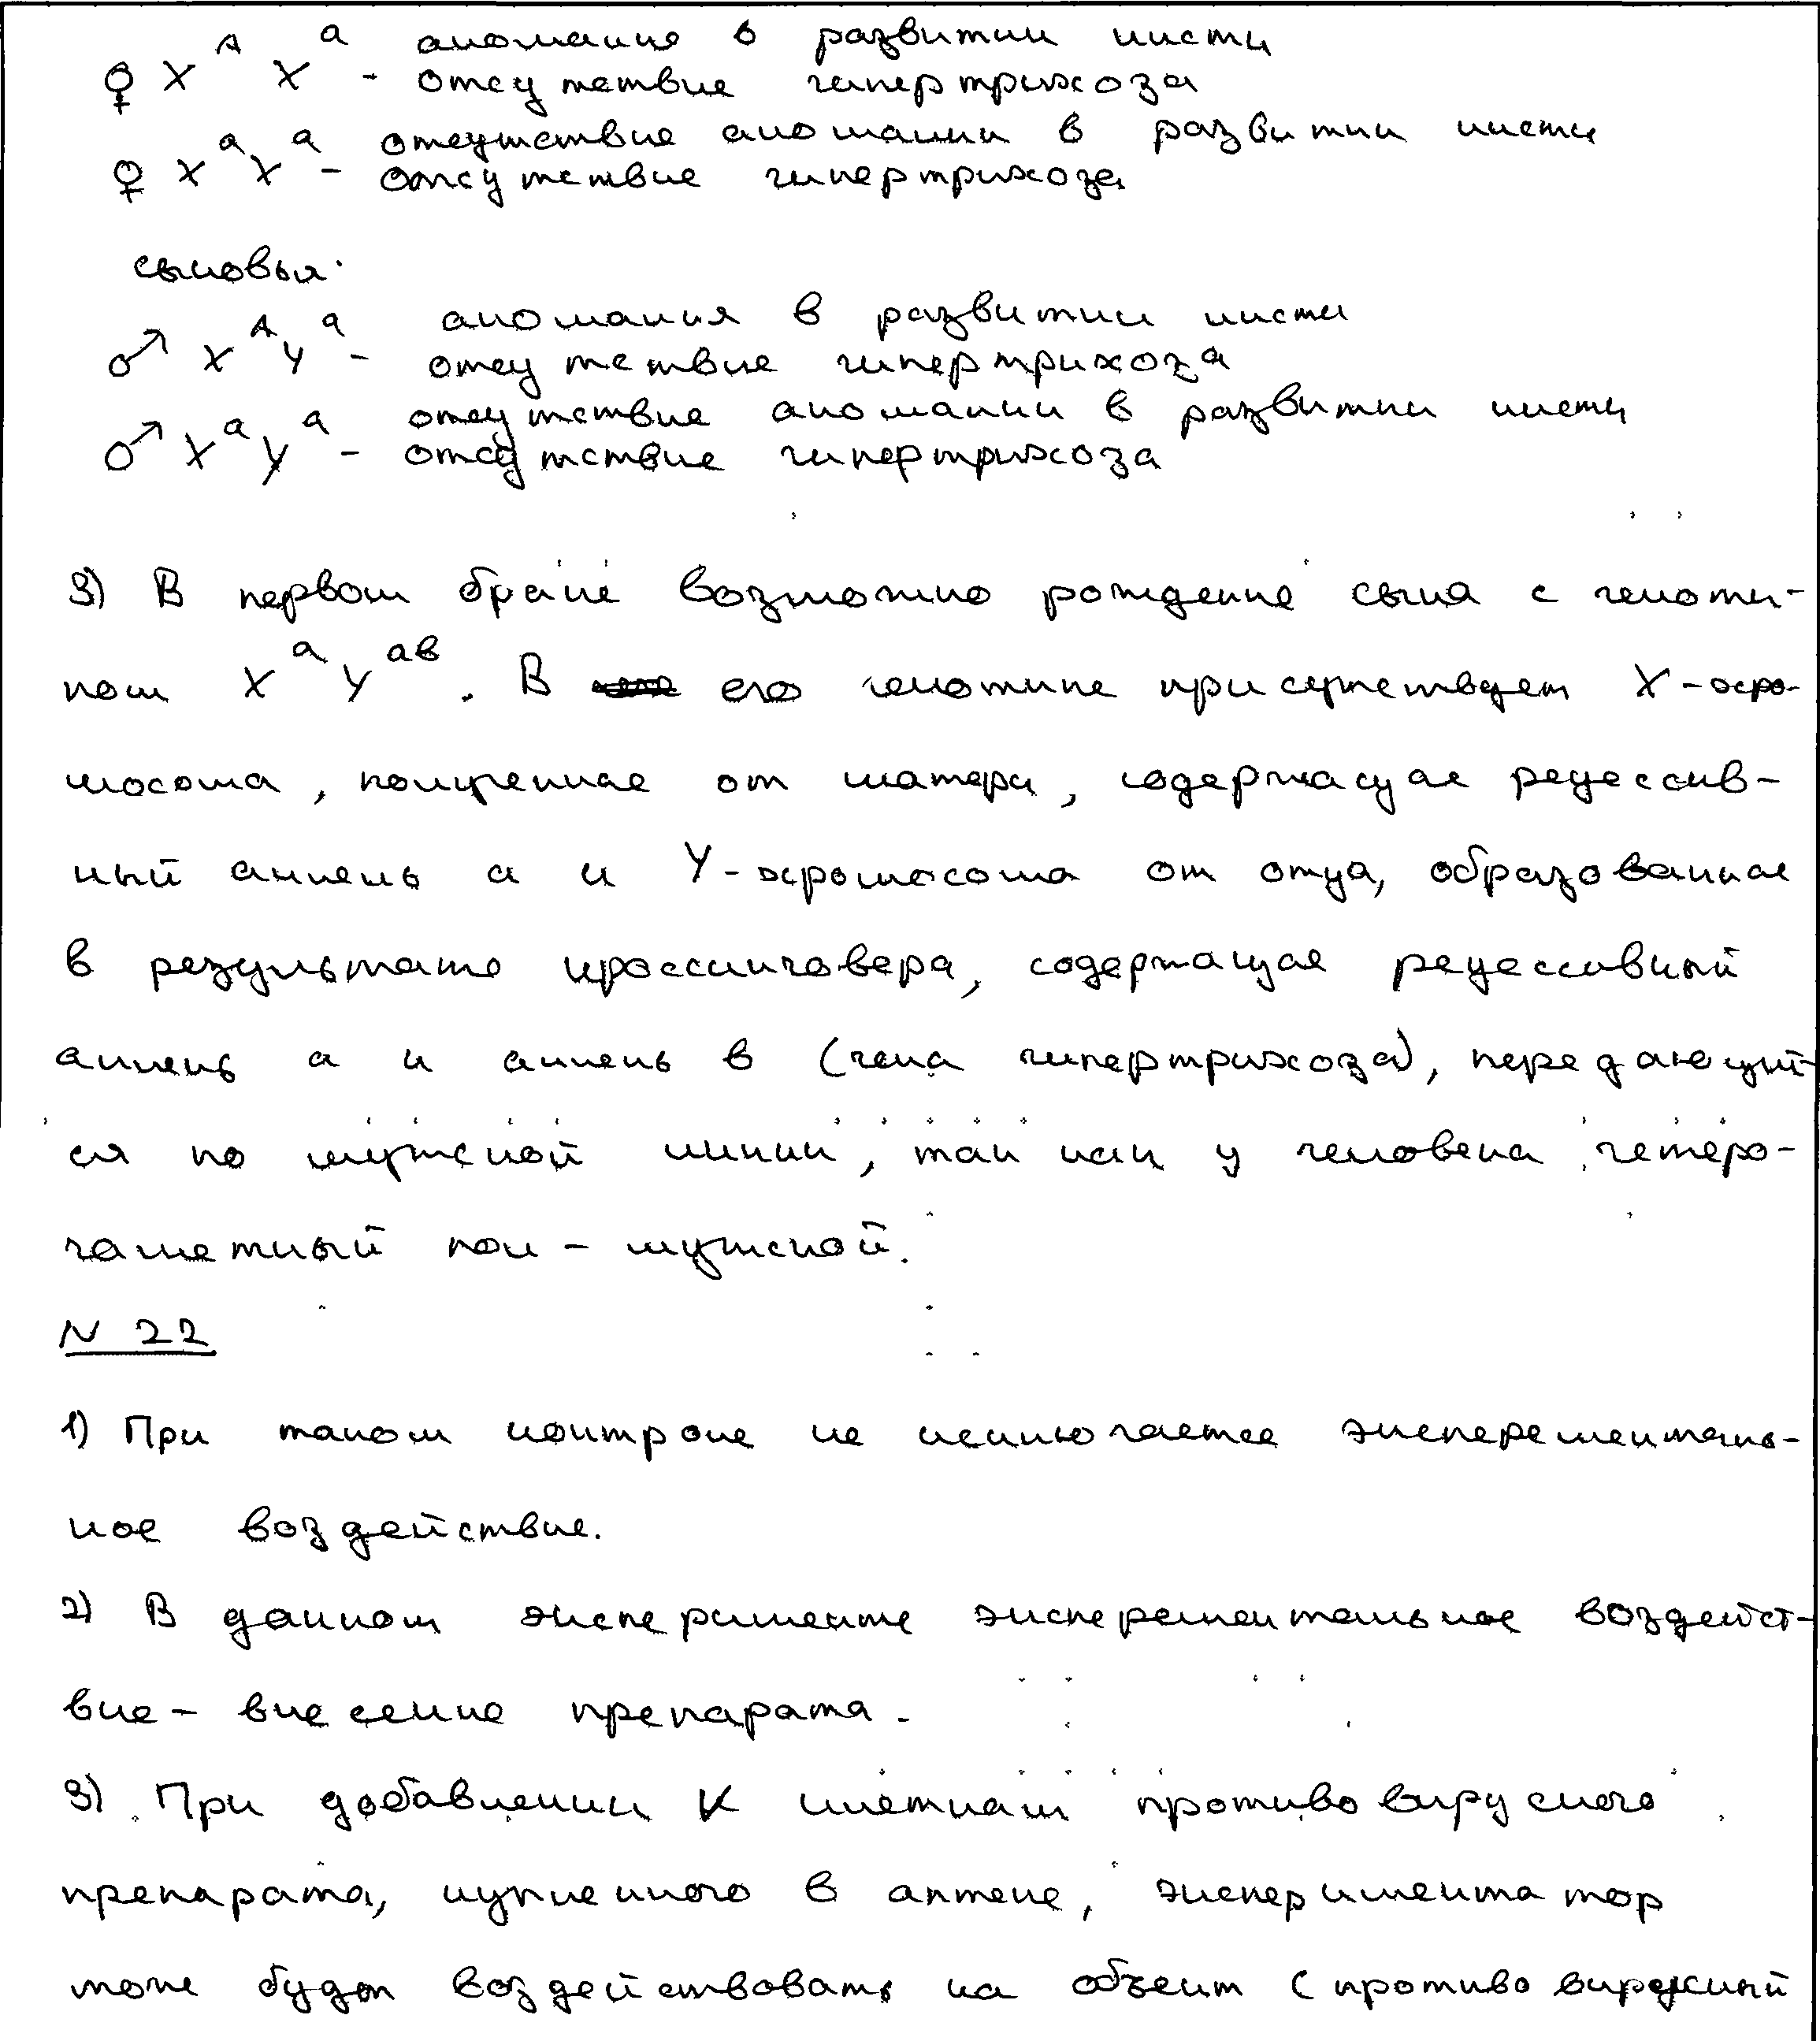 аномалия в развитии кисти
♀ X^A X^a - отсутствие гипертрихоза
отсутствие аномалии в развитии кисти
♀ X^a X^a - отсутствие гипертрихоза
сыновья:
аномалия в развитии кисти
♂ X^A Y^a - отсутствие гипертрихоза
отсутствие аномалии в развитии кисти
♂ X^a Y^a - отсутствие гипертрихоза
3) В первом браке возможно рождение сына с геноти-
пом X^a Y^aв. В его генотипе присутствует X-хро-
мосома, полученная от матери, содержащая рецессив-
ный аллель а и Y-хромосома от отца, образованная
в результате кроссинговера, содержащая рецессивный
аллель а и аллель в (гена гипертрихоза), передающий-
ся по мужской линии, так как у человека гетеро-
гаметный пол - мужской.
N 22
1) При таком контроле не исключается эксперементаль-
ное воздействие.
2) В данном эксперименте эксперементальное воздейст-
вие - внесение препарата.
3) При добавлении к клеткам противовирусного
препарата, купленного в аптеке, экспериментатор
тоже будет воздействовать на объект (противовирусный